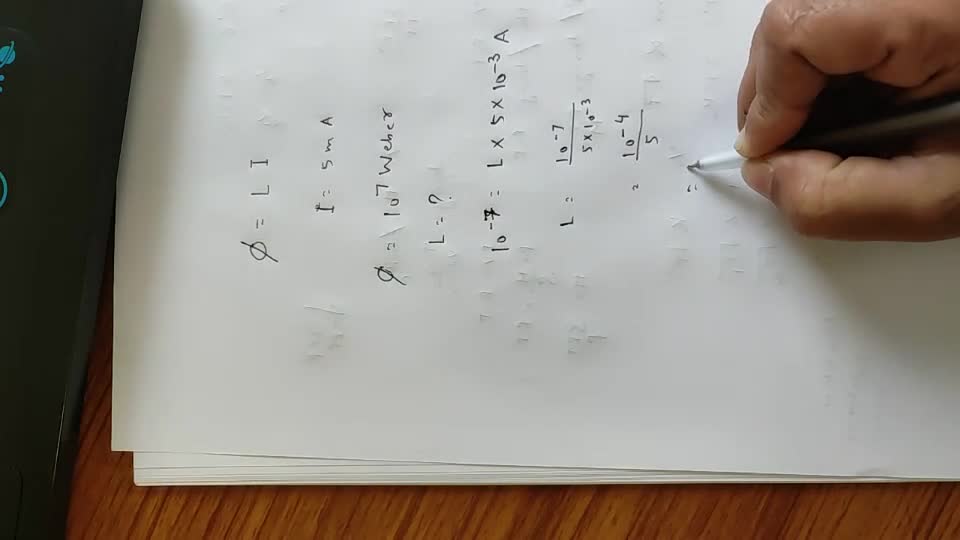 φ = L I
I = 5 m A
φ = 10⁷ Weber
L = ?
10⁻⁷ = L × 5 × 10⁻³ A
L = 10⁻⁷ / 5×10⁻³
= 10⁻⁴ / 5
=